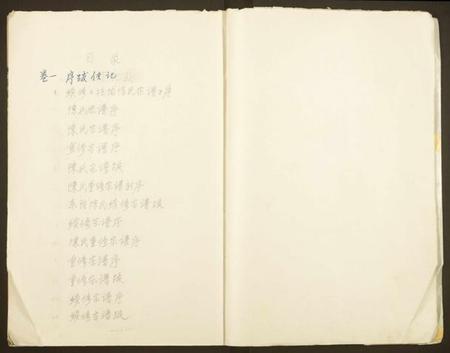 目录
卷一 序跋传记
续修 陈氏宗谱 序
陈氏宗谱序
陈氏宗谱序
重修宗谱序
陈氏宗谱跋
陈氏重修宗谱新序
陈氏续修宗谱跋
续修宗谱序
陈氏重修宗谱序
重修宗谱序
重修宗谱跋
续修宗谱序
续修宗谱跋